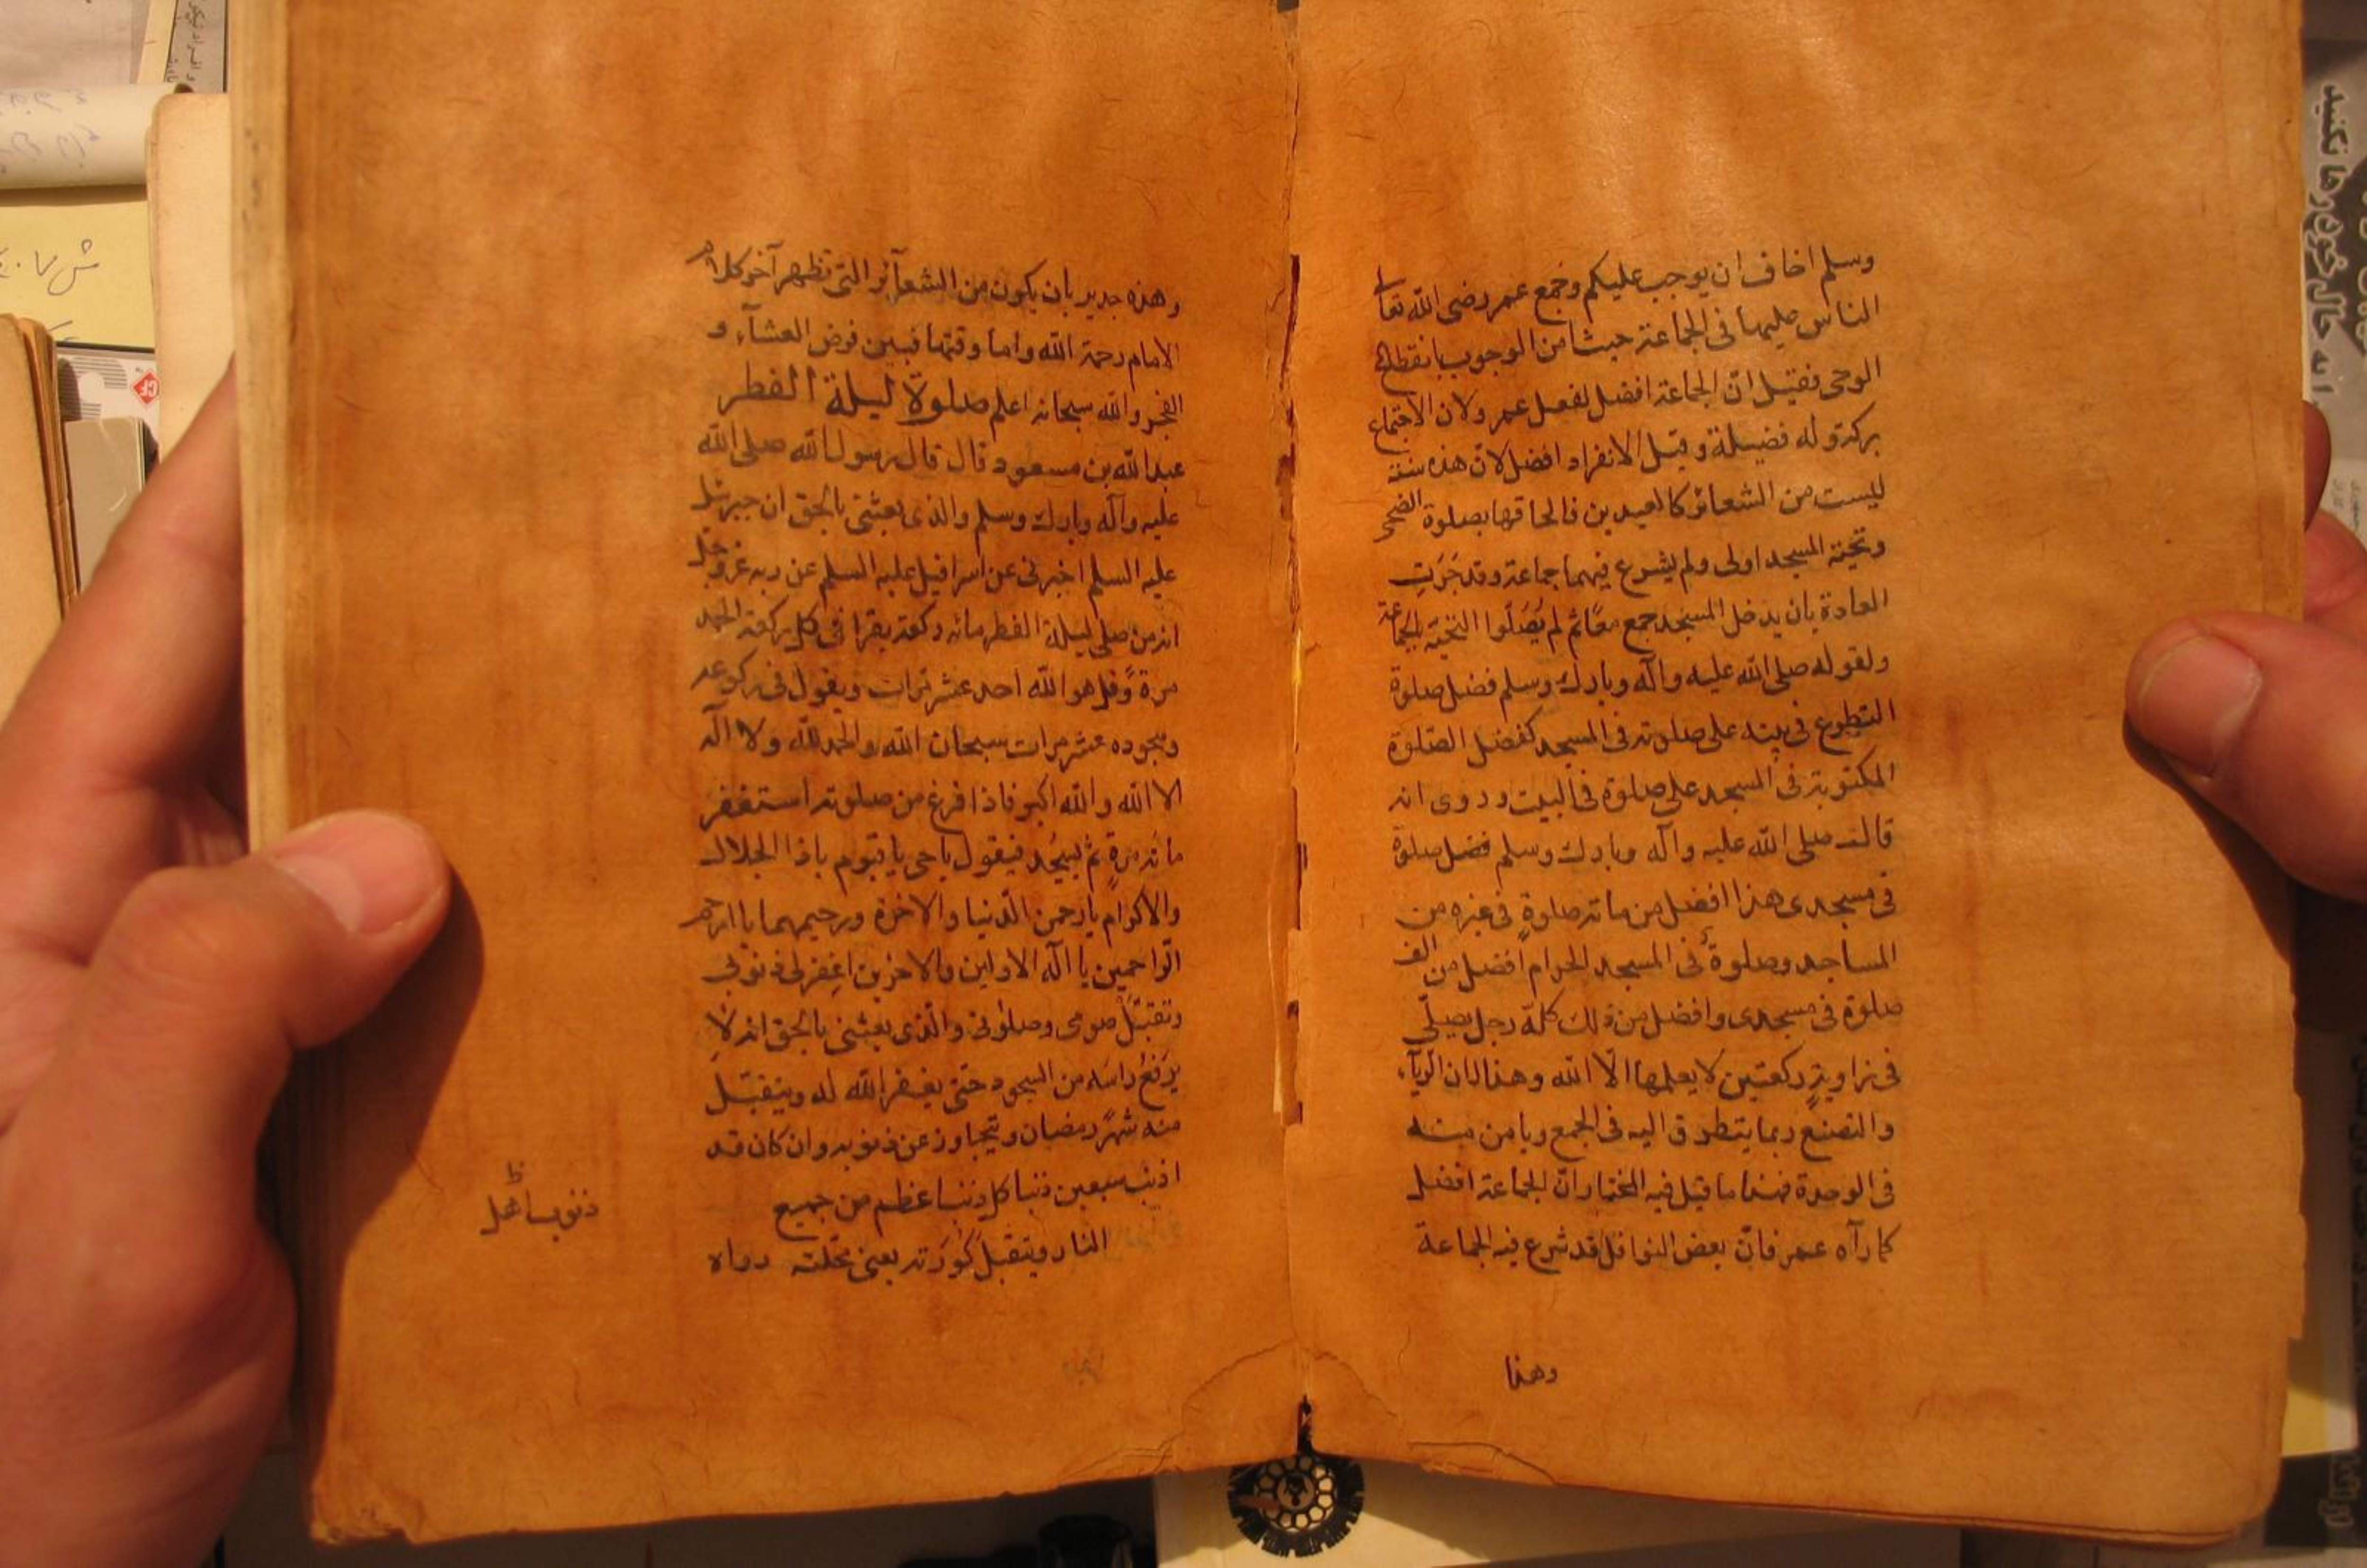 وسلم اخاف ان يوجب عليكم وجمع عمر رضى الله تعا
الناس عليها فى الجماعة حيث امن الوجوب بانقطاع
الوحى فقيل انّ الجماعة افضل لفعل عمر ولان الاجتماع
بركة وله فضيلة وقيل الانفراد افضل لانّ هذه سنة
ليست من الشعائر كالعيدين فالحاقها بصلوة الضحى
وتحيّة المسجد اولى ولم يشرع فيهما جماعة وقد جَرَتِ
العادة بان يدخل المسجد جمع معًا ثم لم يُصَلّوا التحيّة بالجماعة
ولقوله صلى الله عليه وآله وبارك وسلم فضل صلوة
التطوع فى بيته على صلوته فى المسجد كفضل الصّلوة
المكتوبة فى المسجد على صلوة فى البيت وروى انه
قال صلى الله عليه وآله وبارك وسلم فضل صلوة
فى مسجدى هذا افضل من مائة صلوةٍ فى غيره من
المساجد وصلوةٌ فى المسجد الحرام افضل من الف
صلوة فى مسجدى وافضل من ذلك كلّه رجل يصلّى
فى زاويةٍ ركعتين لا يعلمها الّا الله وهذا لان الريآء
والتصنع ربما يتطرق اليه فى الجمع ويامن منه
فى الوحدة فهذا ما قيل فيه المختار انّ الجماعة افضل
كما رآه عمر فانّ بعض النوافل قد شرع فيه الجماعة
وهذا
وهذه جدير بان يكون من الشعآئر التى تظهر آخر كلام
الامام رحمة الله واما وقتها فبين فرض العشآء و
الفجر والله سبحانه اعلم صلوة ليلة الفطر
عبد الله بن مسعود قال قال رسول الله صلى الله
عليه وآله وبارك وسلم والذى بعثنى بالحق ان جبرئيل
عليه السلم اخبرنى عن اسرافيل عليه السلم عن ربه عزّ وجلّ
انه من صلى ليلة الفطر مائة ركعة يقرا فى كل ركعة الحمد
مرة وقل هو الله احد عشر مرات ويقول فى ركوعه
وسجوده عشر مرات سبحان الله والحمد لله ولا اله
الا الله والله اكبر فاذا فرغ من صلوته استغفر
مائة مرةٍ ثم يسجُد فيقول يا حى يا قيوم يا ذا الجلال
والاكرام يا رحمن الدنيا والاخرة ورحيمهما يا ارحم
الراحمين يا اله الاولين والاخرين اغفر لى ذنوبى
وتقبّل صومى وصلوتى والّذى بعثنى بالحق انه لا
يرفع راسه من السجود حتّى يغفر الله له ويتقبّل
منه شهر رمضان ويتجاوز عن ذنوبه وان كان قد
اذنب سبعين ذنبا كل ذنب اعظم من جميع
ذنوب اهل ظ
النار ويتقبل كُورَته يعنى محلّته رواه